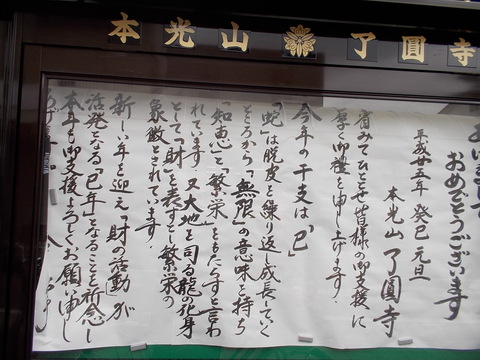 本光山 了圓寺
おめでとうございます
平成廿五年 癸巳 元旦
本光山 了圓寺
皆様の御支援に
厚く御禮を申し上げます
今年の干支は「巳」
「蛇」は脱皮を繰り返し成長していく
ところから「無限」の意味を持ち
「知恵」と「繁栄」をもたらすと言わ
れています 又大地を司る龍の化身
として「財」を表すとし繁栄の
象徴とされています
新しい年を迎え「財の活動」が
活発となる「巳年」となることを祈念し
本年も御支援よろしくお願い申し